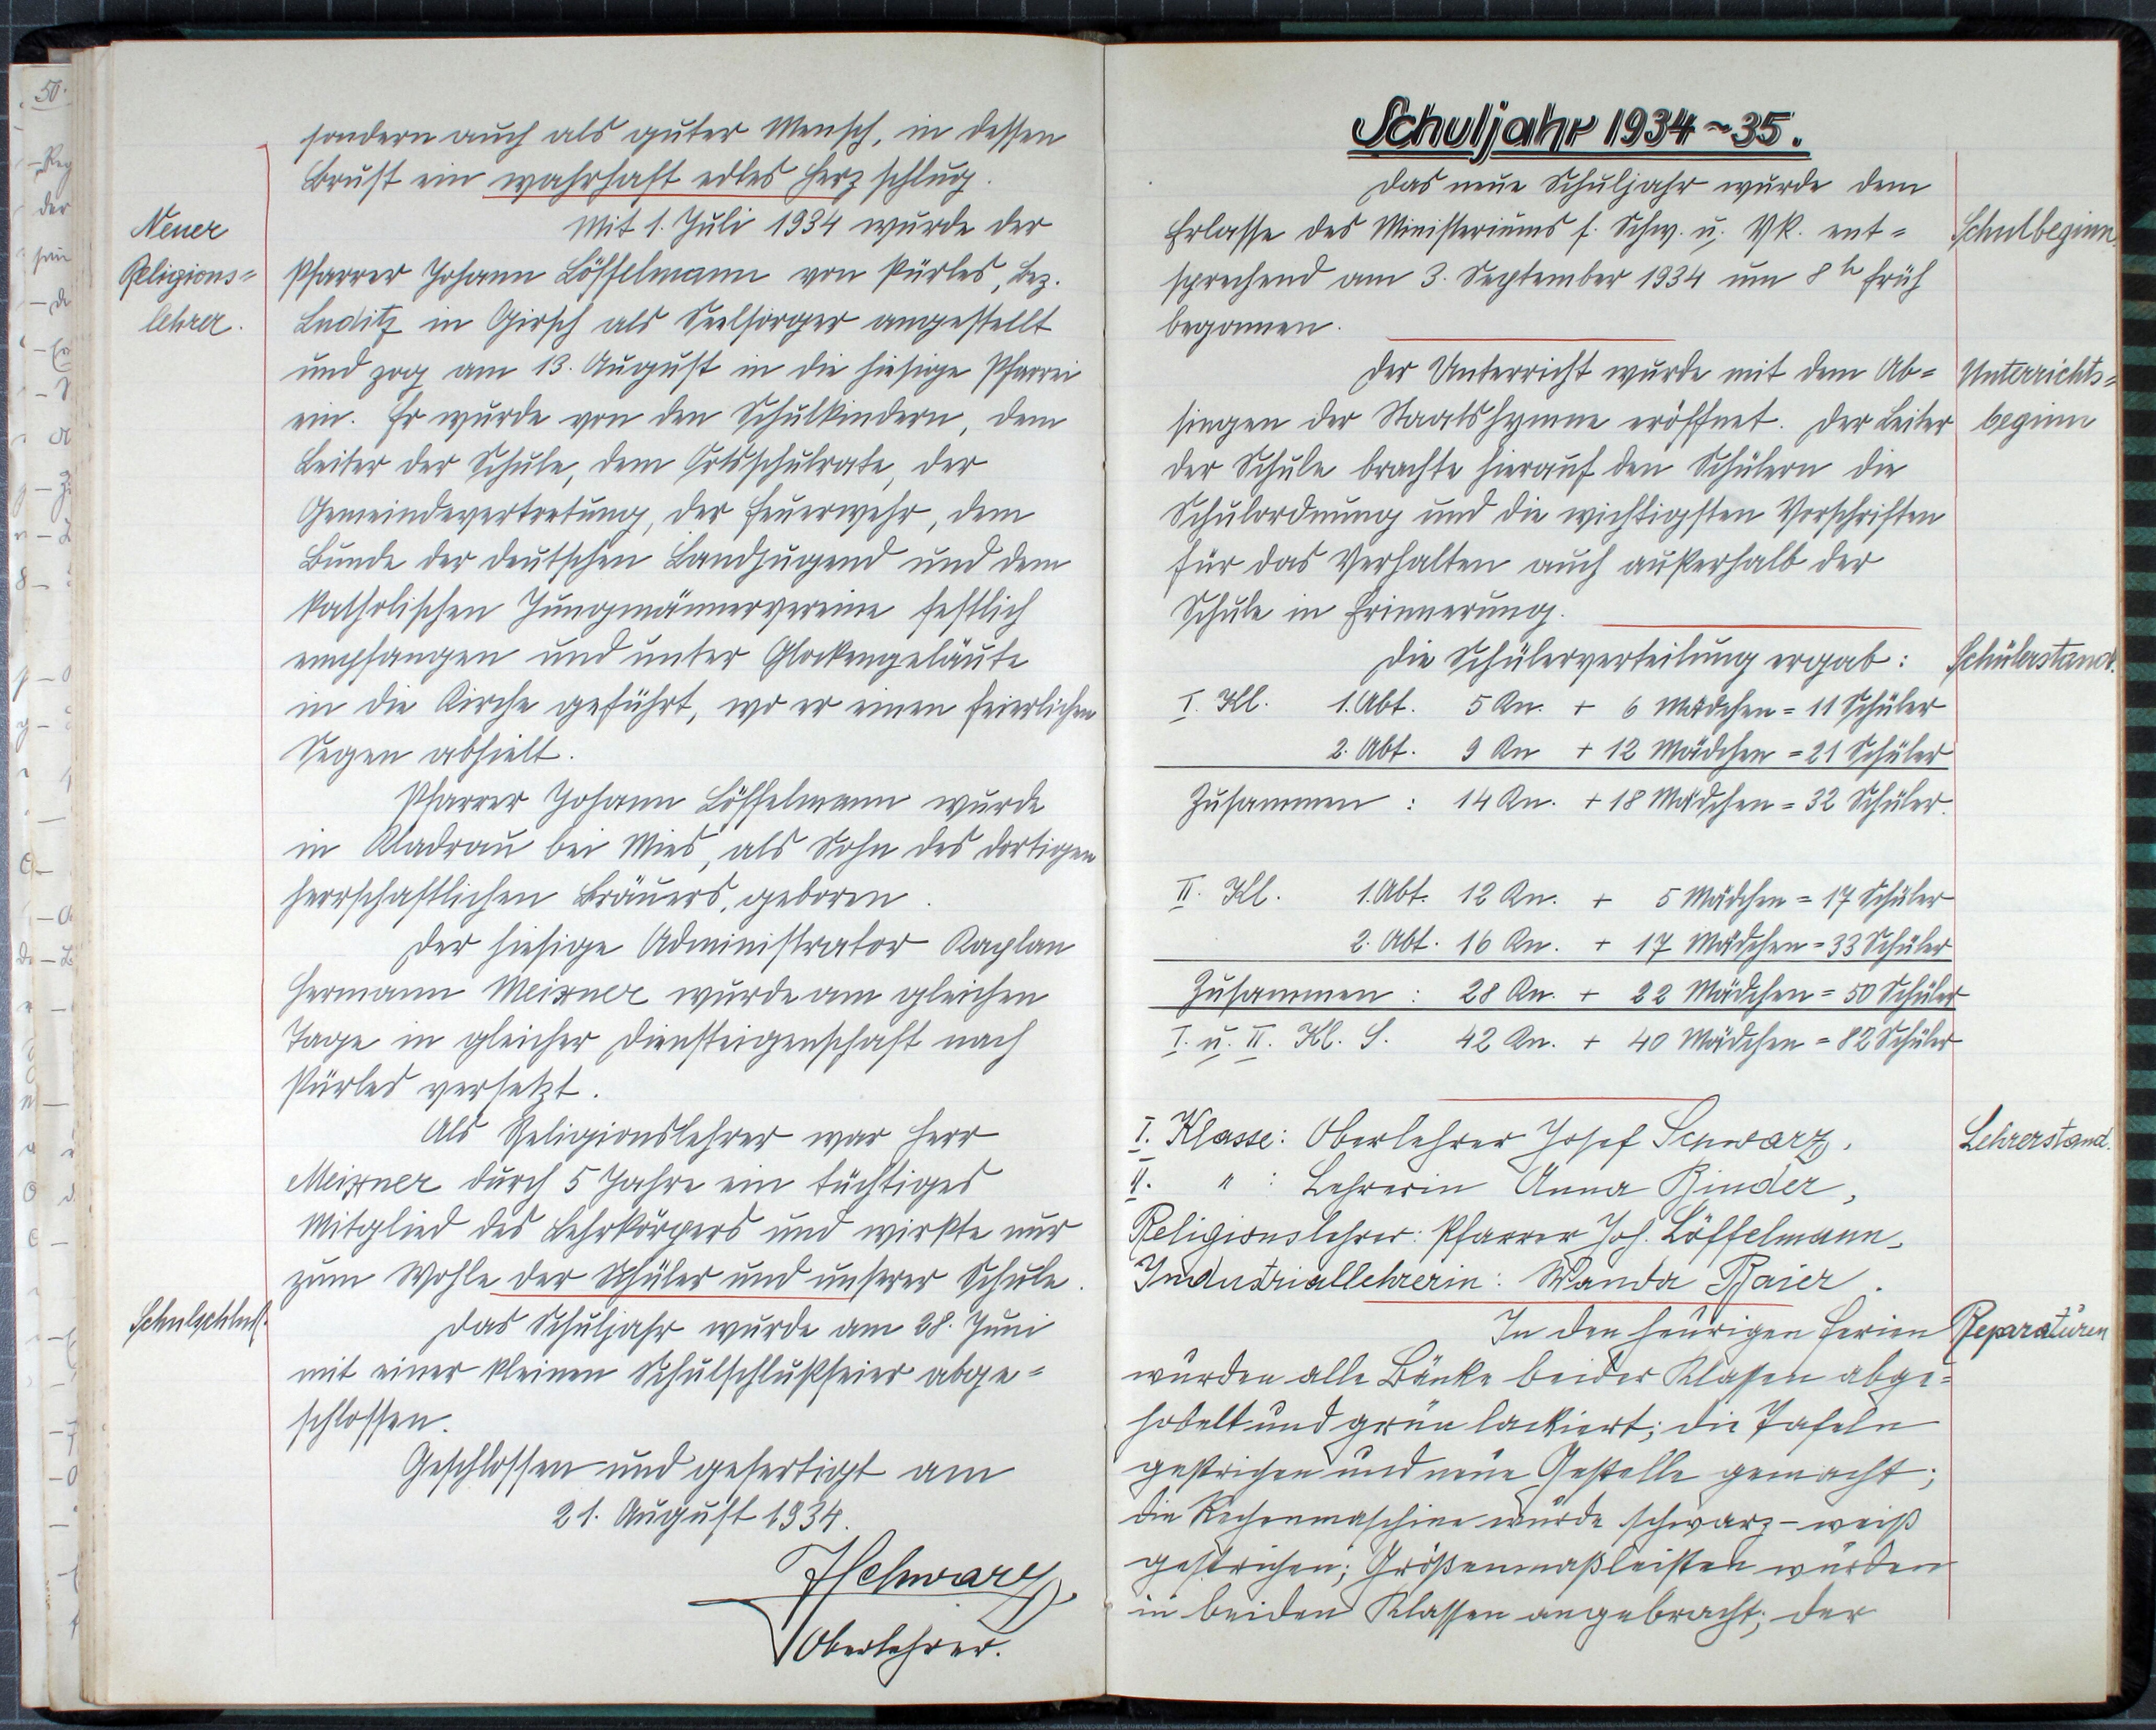 sondern auch als guter Mensch, in dessen
Brust ein wahrhaft edles Herz schlug.
Neuer
Religions=
lehrer.
Mit 1. Juli 1934 wurde der
Pfarrer Johann Löffelmann von Pürles, Bez.
Luditz in Girsch als Seelsorger angestellt
und zog am 13. August in die hiesige Pfarrei
ein. Er wurde von den Schulkindern, dem
Leiter der Schule, dem Ortsschulrate, der
Gemeindevertretung, der Feuerwehr, dem
Bunde der deutschen Landjugend und dem
katholischen Jungmännervereine festlich
empfangen und unter Glockengeläute
in die Kirche geführt, wo er einen feierlichen
Segen abhielt.
Pfarrer Johann Löffelmann wurde
in Kladrau bei Mies, als Sohn des dortigen
herrschaftlichen Bräuers, geboren.
Der hiesige Administrator Kaplan
Hermann Meixner wurde am gleichen
Tage in gleicher Diensteigenschaft nach
Pürles versetzt.
Als Religionslehrer war Herr
Meixner durch 5 Jahre ein tüchtiges
Mitglied des Lehrkörpers und wirkte nur
zum Wohle der Schüler und unserer Schule.
Schulschluß.
Das Schuljahr wurde am 28. Juni
mit einer kleinen Schulschlußfeier abge=
schlossen.
Geschlossen und gefertigt am
21. August 1934.
JSchwarz
Oberlehrer.
Schuljahr 1934~35.
Das neue Schuljahr wurde dem
Erlasse des Ministeriums f. Schw. u. Vk. ent=
sprechend am 3. September 1934 um 8h früh
begonnen.
Schulbeginn.
Der Unterricht wurde mit dem Ab=
singen der Staatshymne eröffnet. Der Leiter
der Schule brachte hierauf den Schülern die
Schulordnung und die wichtigsten Vorschriften
für das Verhalten auch außerhalb der
Schule in Erinnerung.
Unterrichts=
beginn
Die Schülerverteilung ergab:
Schülerstand.
I. Kl. 1. Abt. 5 Kn. + 6 Mädchen = 11 Schüler
2. Abt. 9 Kn + 12 Mädchen = 21 Schüler
Zusammen : 14 Kn. + 18 Mädchen = 32 Schüler.
II. Kl. 1. Abt. 12 Kn. + 5 Mädchen = 17 Schüler
2. Abt. 16 Kn. + 17 Mädchen = 33 Schüler
Zusammen : 28 Kn. + 22 Mädchen = 50 Schüler
I. u. II. Kl. S. 42 Kn. + 40 Mädchen = 82 Schüler
I. Klasse: Oberlehrer Josef Schwarz,
II. " : Lehrerin Anna Binder,
Religionslehrer: Pfarrer Joh. Löffelmann,
Industriallehrerin: Wanda Baier.
Lehrerstand.
In den heurigen Ferien
wurden alle Bänke beider Klassen abge=
hobelt und grün lackiert; die Tafeln
gestrichen und neue Gestelle gemacht;
die Rechenmaschine wurde schwarz-weiß
gestrichen; Größenmaßleisten wurden
in beiden Klassen angebracht; der
Reparaturen
50.